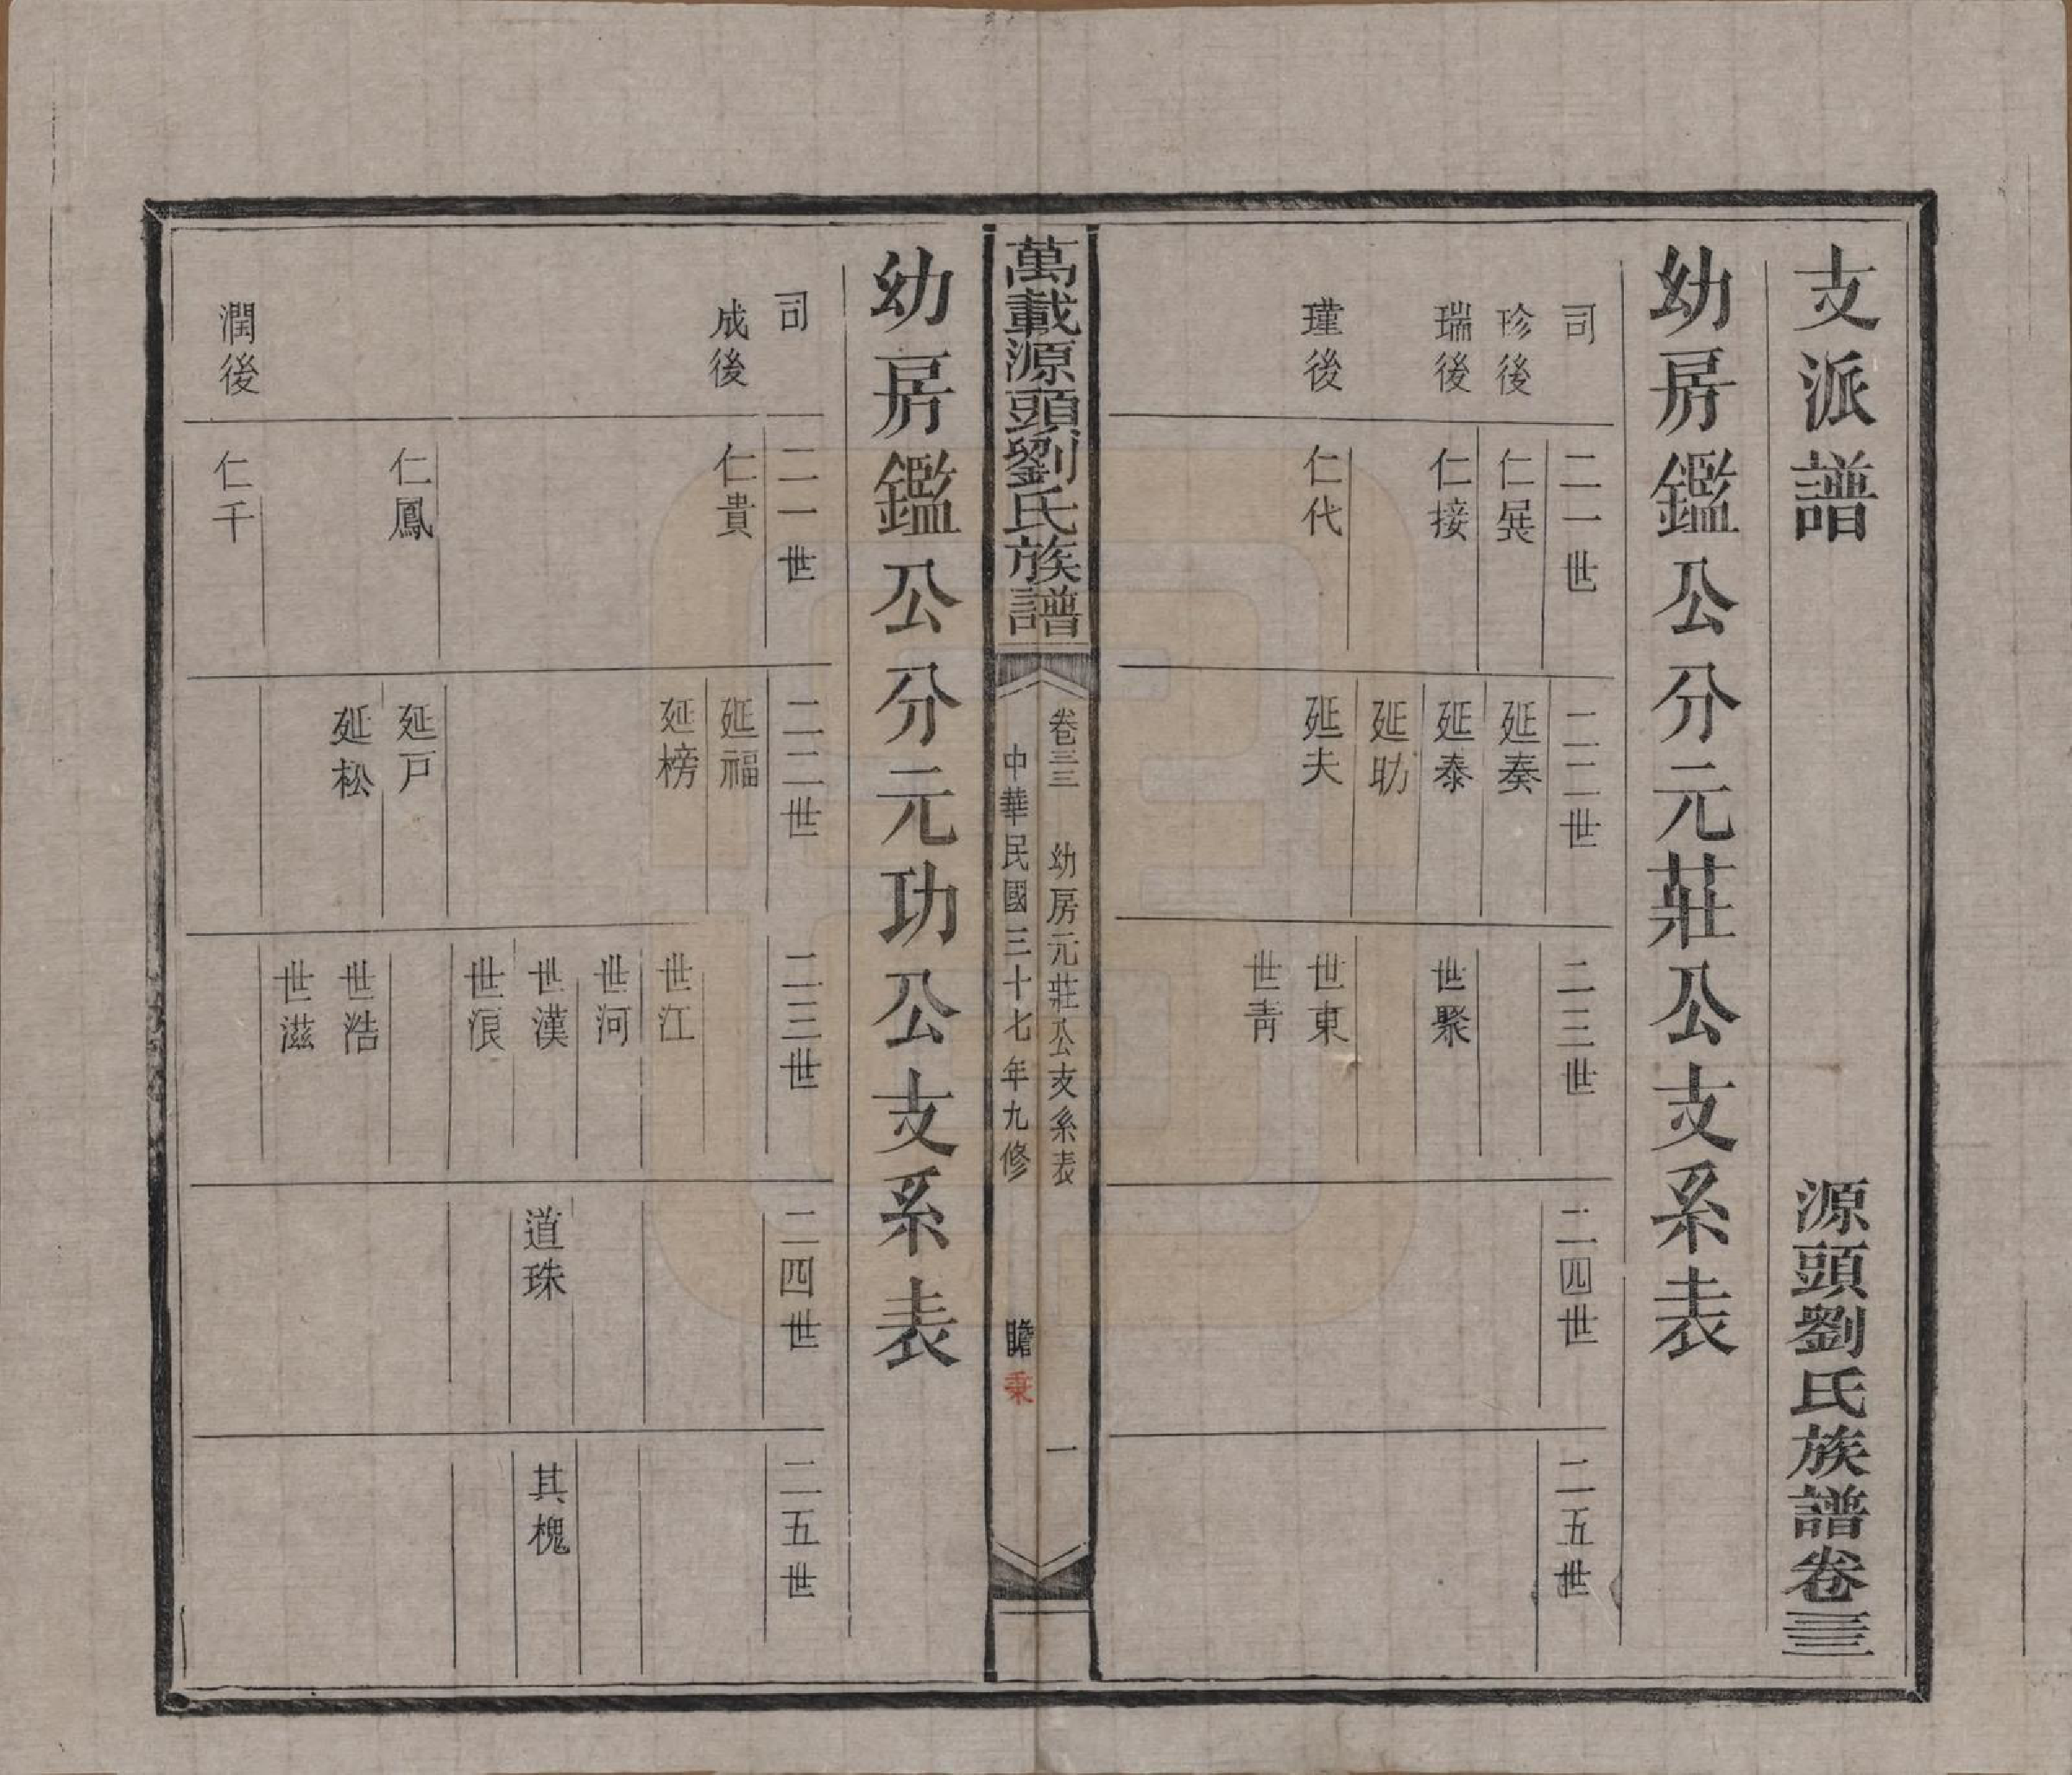 支派譜
源頭劉氏族譜卷三三
幼房鑑公分元莊公支系表
司
二一世
二二世
二三世
二四世
二五世
珍後
仁㠭
延奏
瑞後
仁接
延泰
世聚
延助
瑾後
仁代
延夫
世東
世青
萬載源頭劉氏族譜
卷三三
幼房元莊公支系表
一
中華民國三十七年九修
瞻
秉
幼房鑑公分元功公支系表
司
二一世
二二世
二三世
二四世
二五世
成後
仁貴
延福
延榜
世江
世河
世漢
道珠
其槐
世浪
仁鳳
延戸
延松
世浩
世滋
潤後
仁千